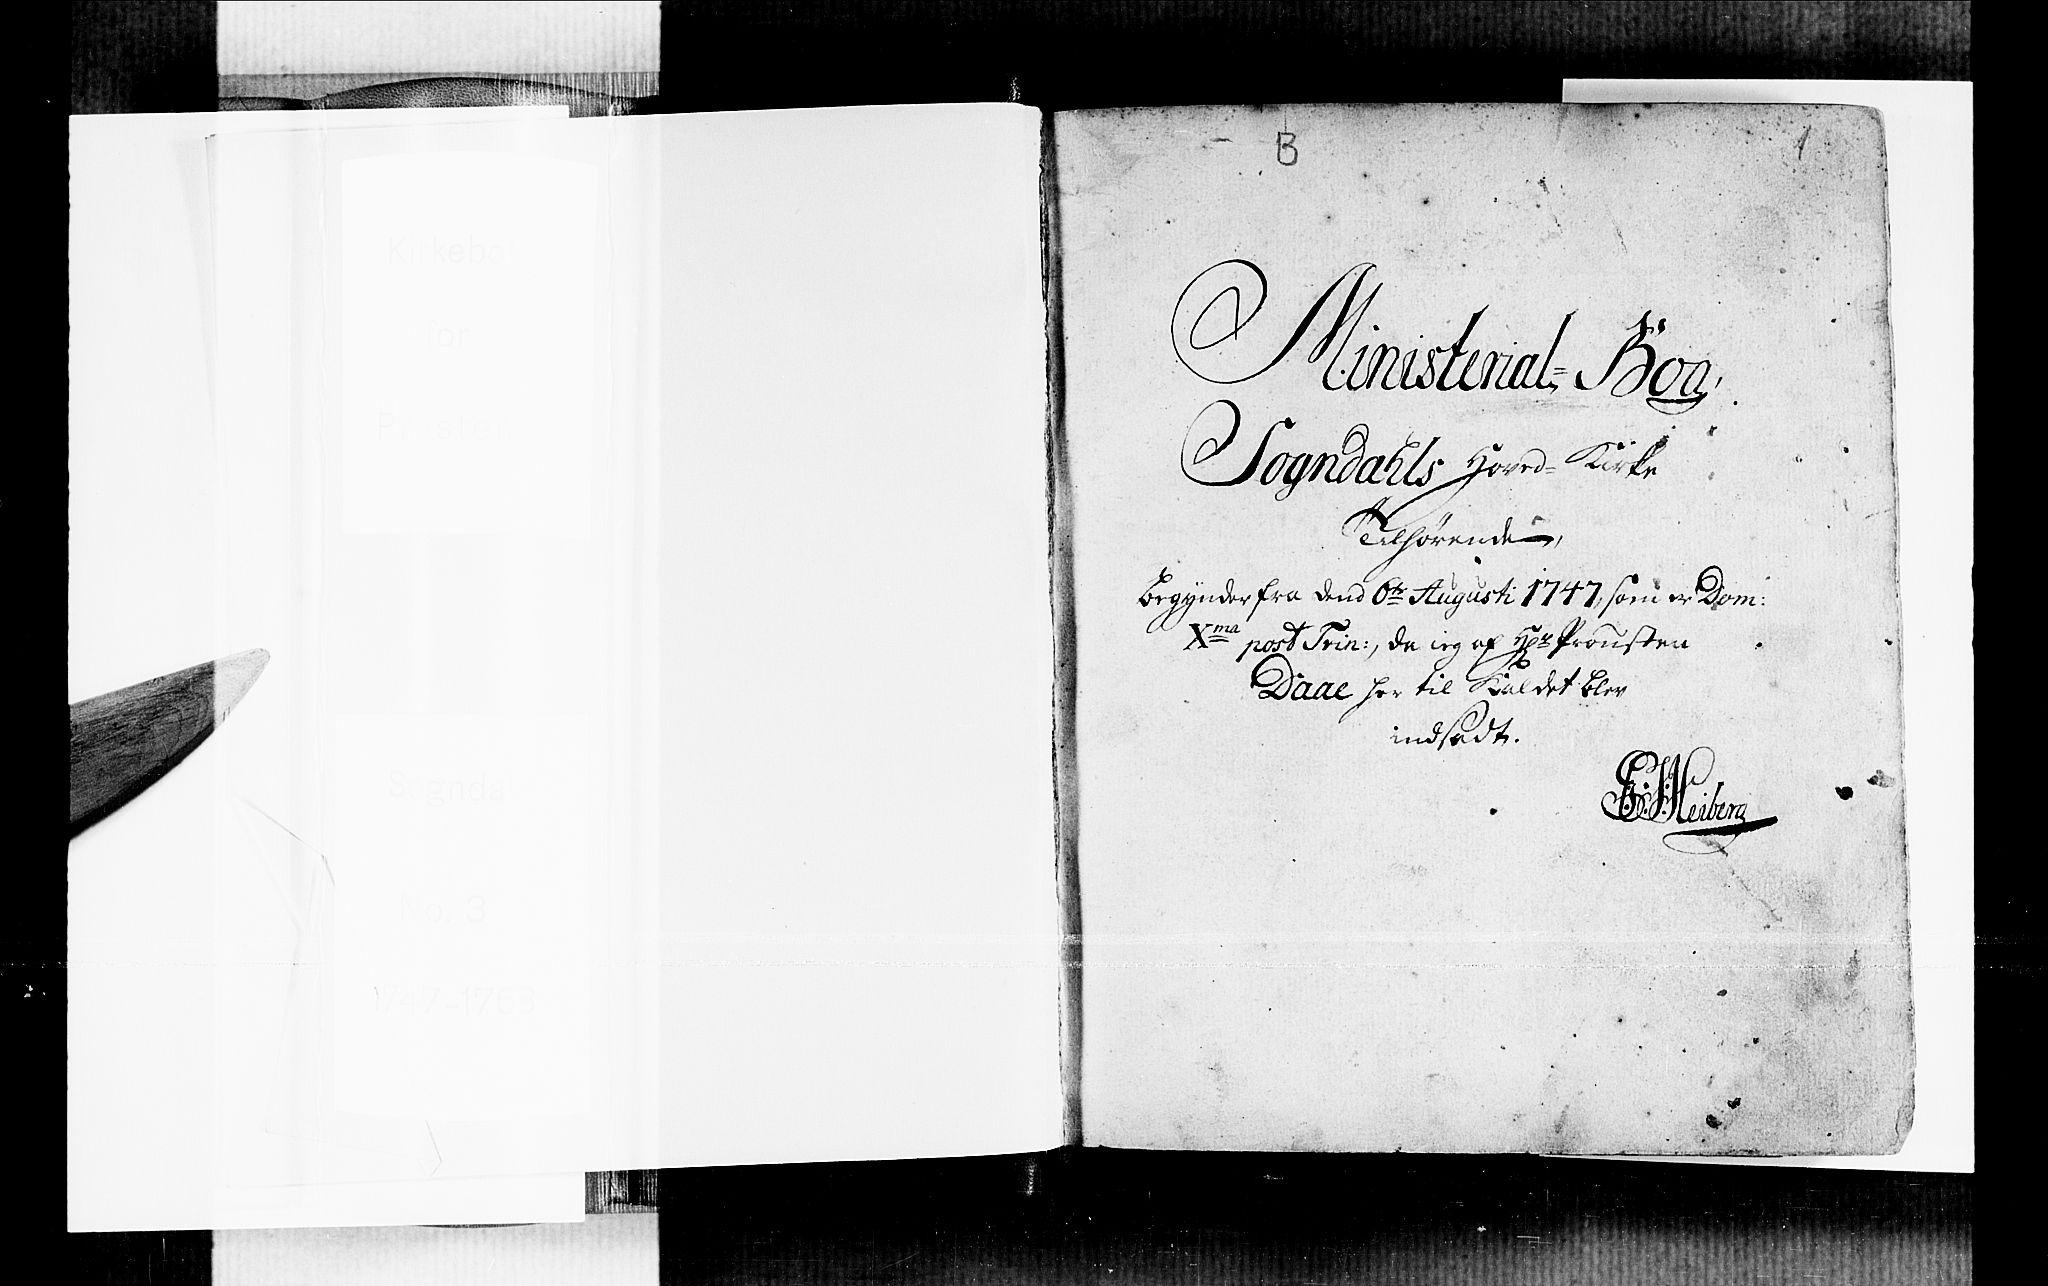 Kirkebok
for
Sogndal
No. 3
1747-1763
B
1
Ministerial-Bog,
Sogndahls Hoved-Kirke
Tilhørende,
begynder fra dend 6te Augusti 1747, som er Dom:
Xma post Trin:, da ieg af Hr Prousten
Daae her til Kaldet blev
indsadt.
Heiberg